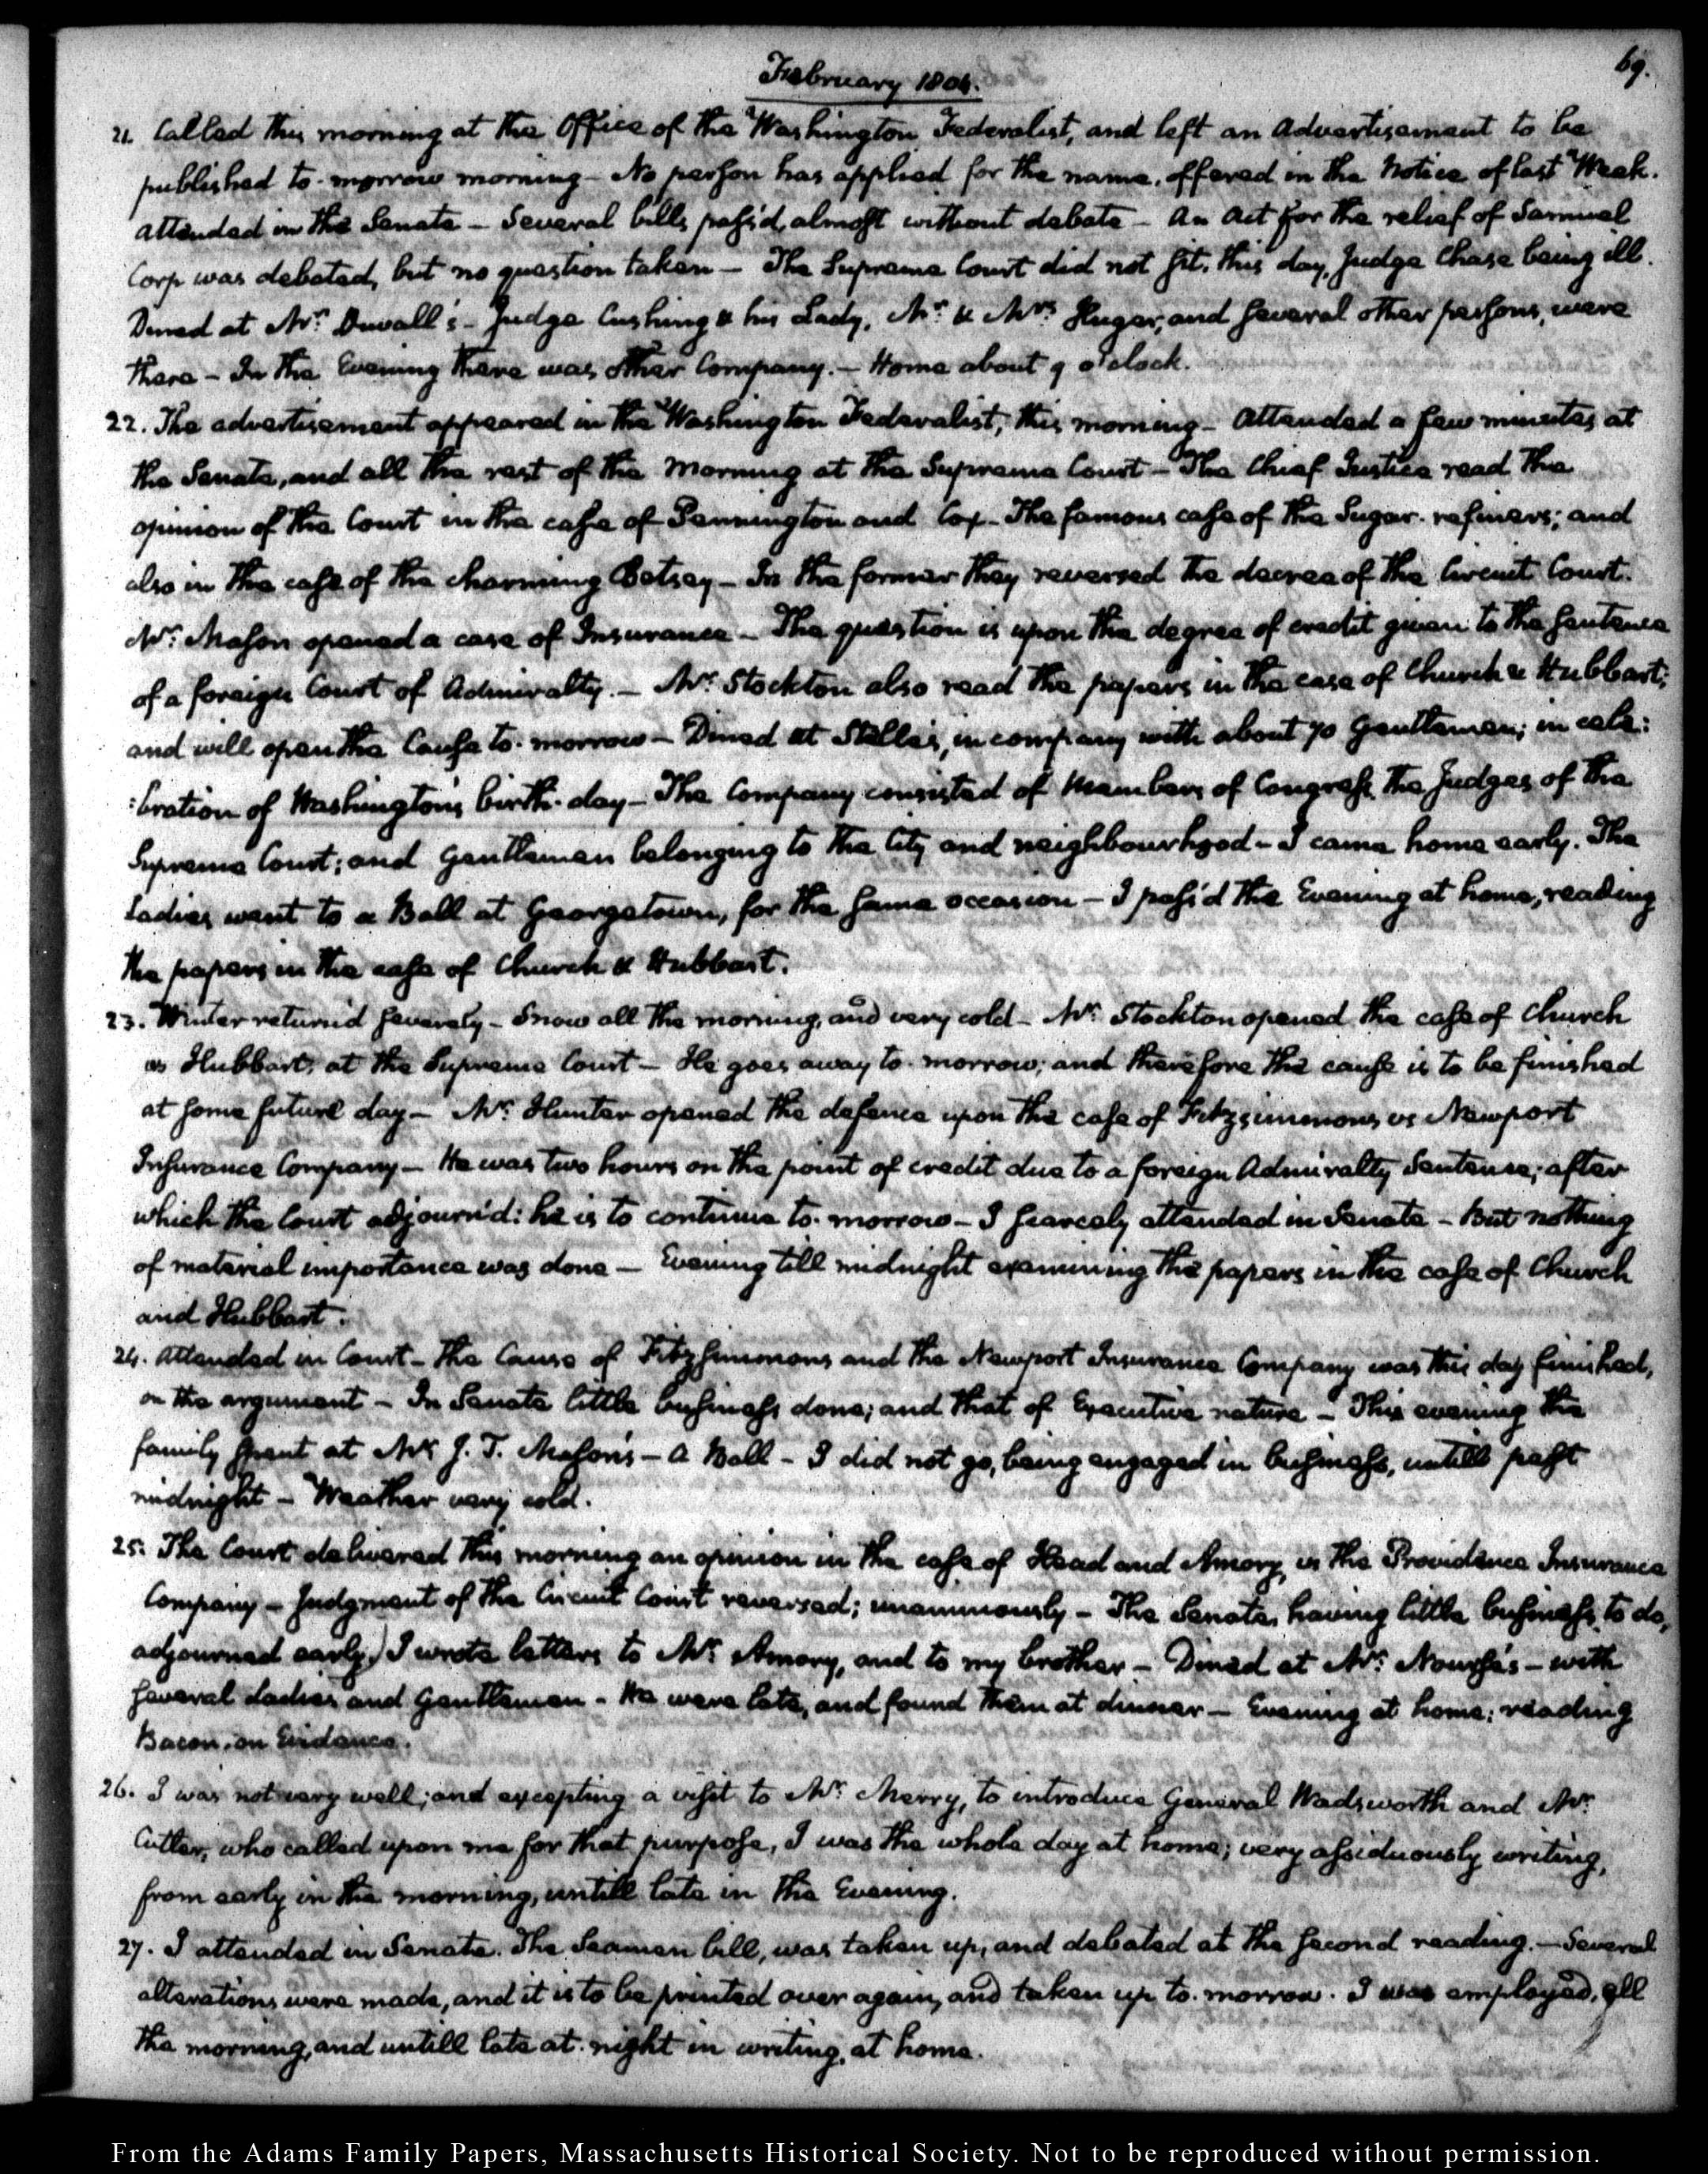 February 1804.
69.
21. Called this morning at the Office of the Washington Federalist, and left an Advertisement to be
published to-morrow morning — No person has applied for the name, offered in the Notice of last Week.
Attended in the Senate — Several bills pass'd, almost without debate — An Act for the relief of Samuel
Corp was debated, but no question taken — The Supreme Court did not sit, this day, Judge Chase being ill.
Dined at Mr: Duvall's — Judge Cushing & his Lady, Mr: & Mrs: Huger, and several other persons, were
there — In the Evening there was other Company. — Home about 9 o'clock.
22. The advertisement appeared in the Washington Federalist, this morning — Attended a few minutes at
the Senate, and all the rest of the Morning at the Supreme Court — The Chief Justice read the
opinion of the Court in the case of Pennington and Cox — The famous case of the Sugar-refiners; and
also in the case of the charming Betsey — In the former they reversed the decree of the Circuit Court.
Mr: Mason opened a case of Insurance — The question is upon the degree of credit given to the sentence
of a foreign Court of Admiralty. — Mr: Stockton also read the papers in the case of Church & Hubbart;
and will open the Cause to-morrow — Dined at Stelle's, in company with about 70 Gentlemen; in cele:
:bration of Washington's birth-day — The Company consisted of Members of Congress, the Judges of the
Supreme Court; and Gentlemen belonging to the City and neighbourhood — I came home early. The
Ladies went to a Ball at Georgetown, for the same occasion — I pass'd the Evening at home, reading
the papers in the case of Church & Hubbart.
23. Winter return'd severely — Snow all the morning, and very cold — Mr: Stockton opened the case of Church
vs Hubbart, at the Supreme Court — He goes away to-morrow; and therefore the cause is to be finished
at some future day — Mr: Hunter opened the defence upon the case of Fitzsimmons vs Newport
Insurance Company — He was two hours on the point of credit due to a foreign Admiralty Sentence; after
which the Court adjourn'd: he is to continue to-morrow — I scarcely attended in Senate — But nothing
of material importance was done — Evening till midnight examining the papers in the case of Church
and Hubbart.
24. Attended in Court — The Cause of Fitzsimmons and the Newport Insurance Company was this day finished,
on the argument — In Senate little business done; and that of Executive nature — This evening the
family spent at Mr: J. T. Mason's — A Ball — I did not go, being engaged in business, untill past
midnight — Weather very cold.
25. The Court delivered this morning an opinion in the case of Head and Amory, vs the Providence Insurance
Company — Judgment of the Circuit Court reversed; unanimously — The Senate, having little business to do,
adjourned early.) I wrote letters to Mr: Amory, and to my brother — Dined at Mr: Nourse's — with
several Ladies and Gentlemen — We were late, and found them at dinner — Evening at home; reading
Bacon, on Evidence.
26. I was not very well; and excepting a visit to Mr: Merry, to introduce General Wadsworth and Mr:
Cutler, who called upon me for that purpose, I was the whole day at home; very assiduously writing,
from early in the morning, untill late in the Evening.
27. I attended in Senate. The Seamen bill, was taken up, and debated at the second reading. — Several
alterations were made, and it is to be printed over again, and taken up to-morrow. I was employed, all
the morning, and untill late at night in writing, at home.
From the Adams Family Papers, Massachusetts Historical Society. Not to be reproduced without permission.